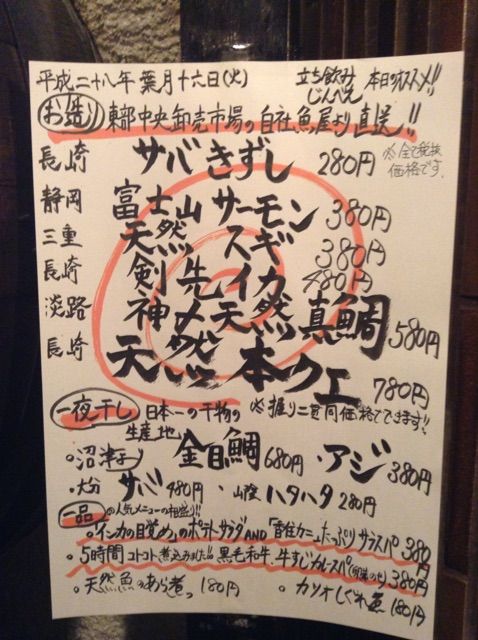 平成二十八年 葉月十六日(火) 立ち飲み 本日のオススメ!!
じんべえ
お造り 東部中央卸売市場の自社魚屋より直送!!
長崎 サバきずし 280円 ※全て税抜価格です。
静岡 富士山サーモン 380円
三重 天然スギ 380円
長崎 剣先イカ 480円
淡路 神〆天然真鯛 580円
長崎 天然本クエ 780円
一夜干し 日本一の干物の生産地 ※握り二貫同価格でできます!!
・沼津 金目鯛 680円 ・アジ 380円
・大分 サバ 480円 ・山陰 ハタハタ 280円
一品 人気メニューの相盛り!!
・「インカの目覚め」のポテトサラダAND「雪佳カニ」たっぷりサラスパ 380円
・5時間コトコト煮込みました!! 黒毛和牛 牛すじカレースパ 380円
・天然魚のあら煮 180円 ・カツオしぐれ煮 180円